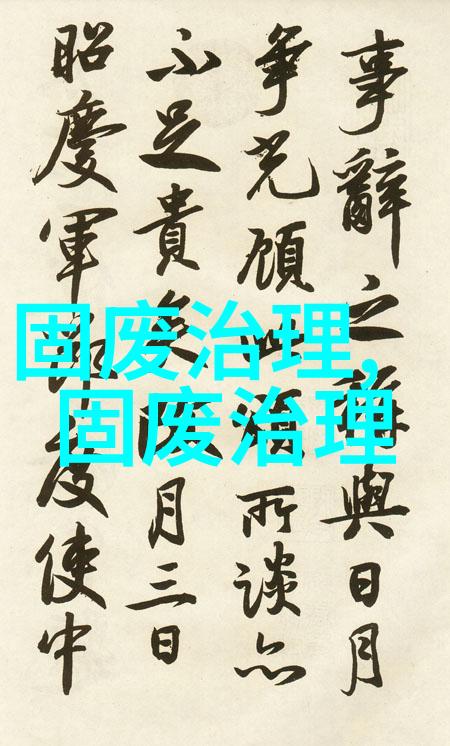 事辭之與日月
爭光顧此頌所談亦
不足貴矣月三日
昭慶軍節度使中
固废治理,
固废治理